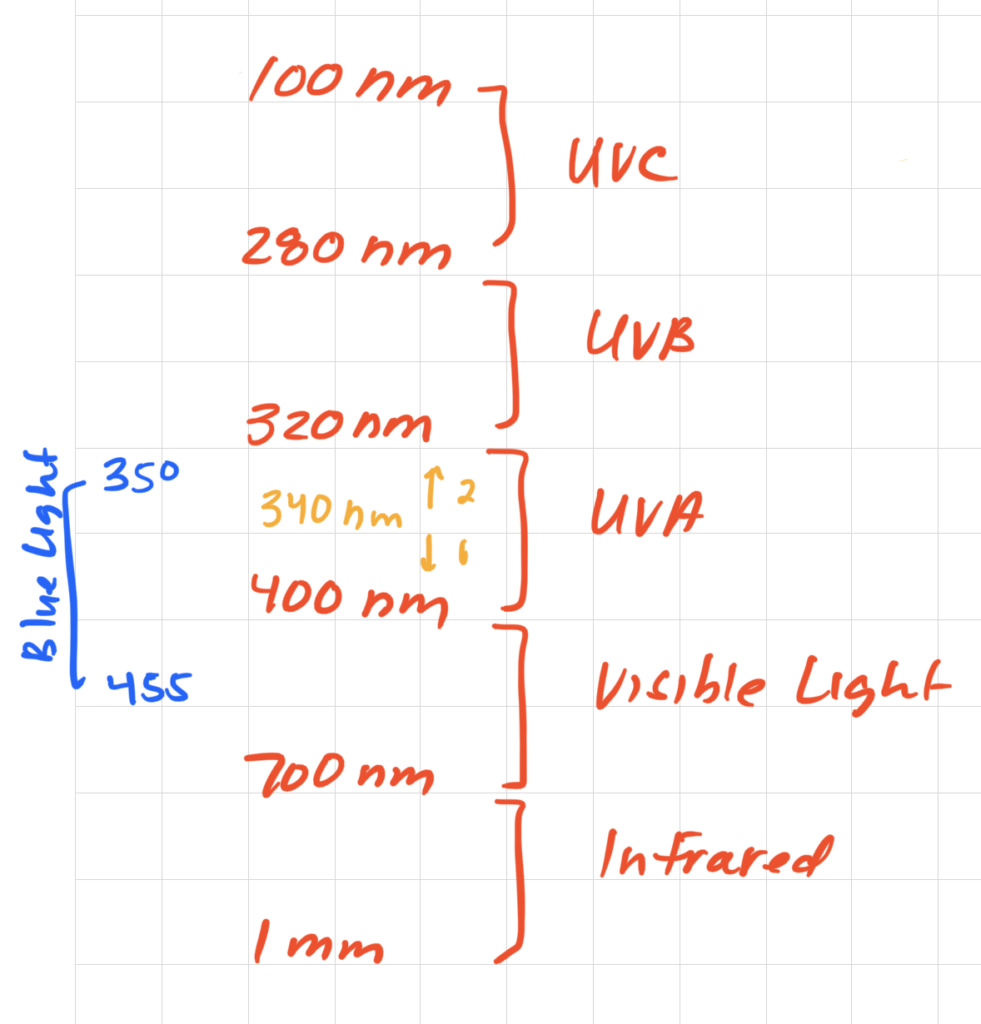 100 nm
UVC
280 nm
UVB
320 nm
Blue Light
350
340 nm
↑ 2
UVA
↓
400 nm
455
Visible Light
700 nm
Infrared
1 mm